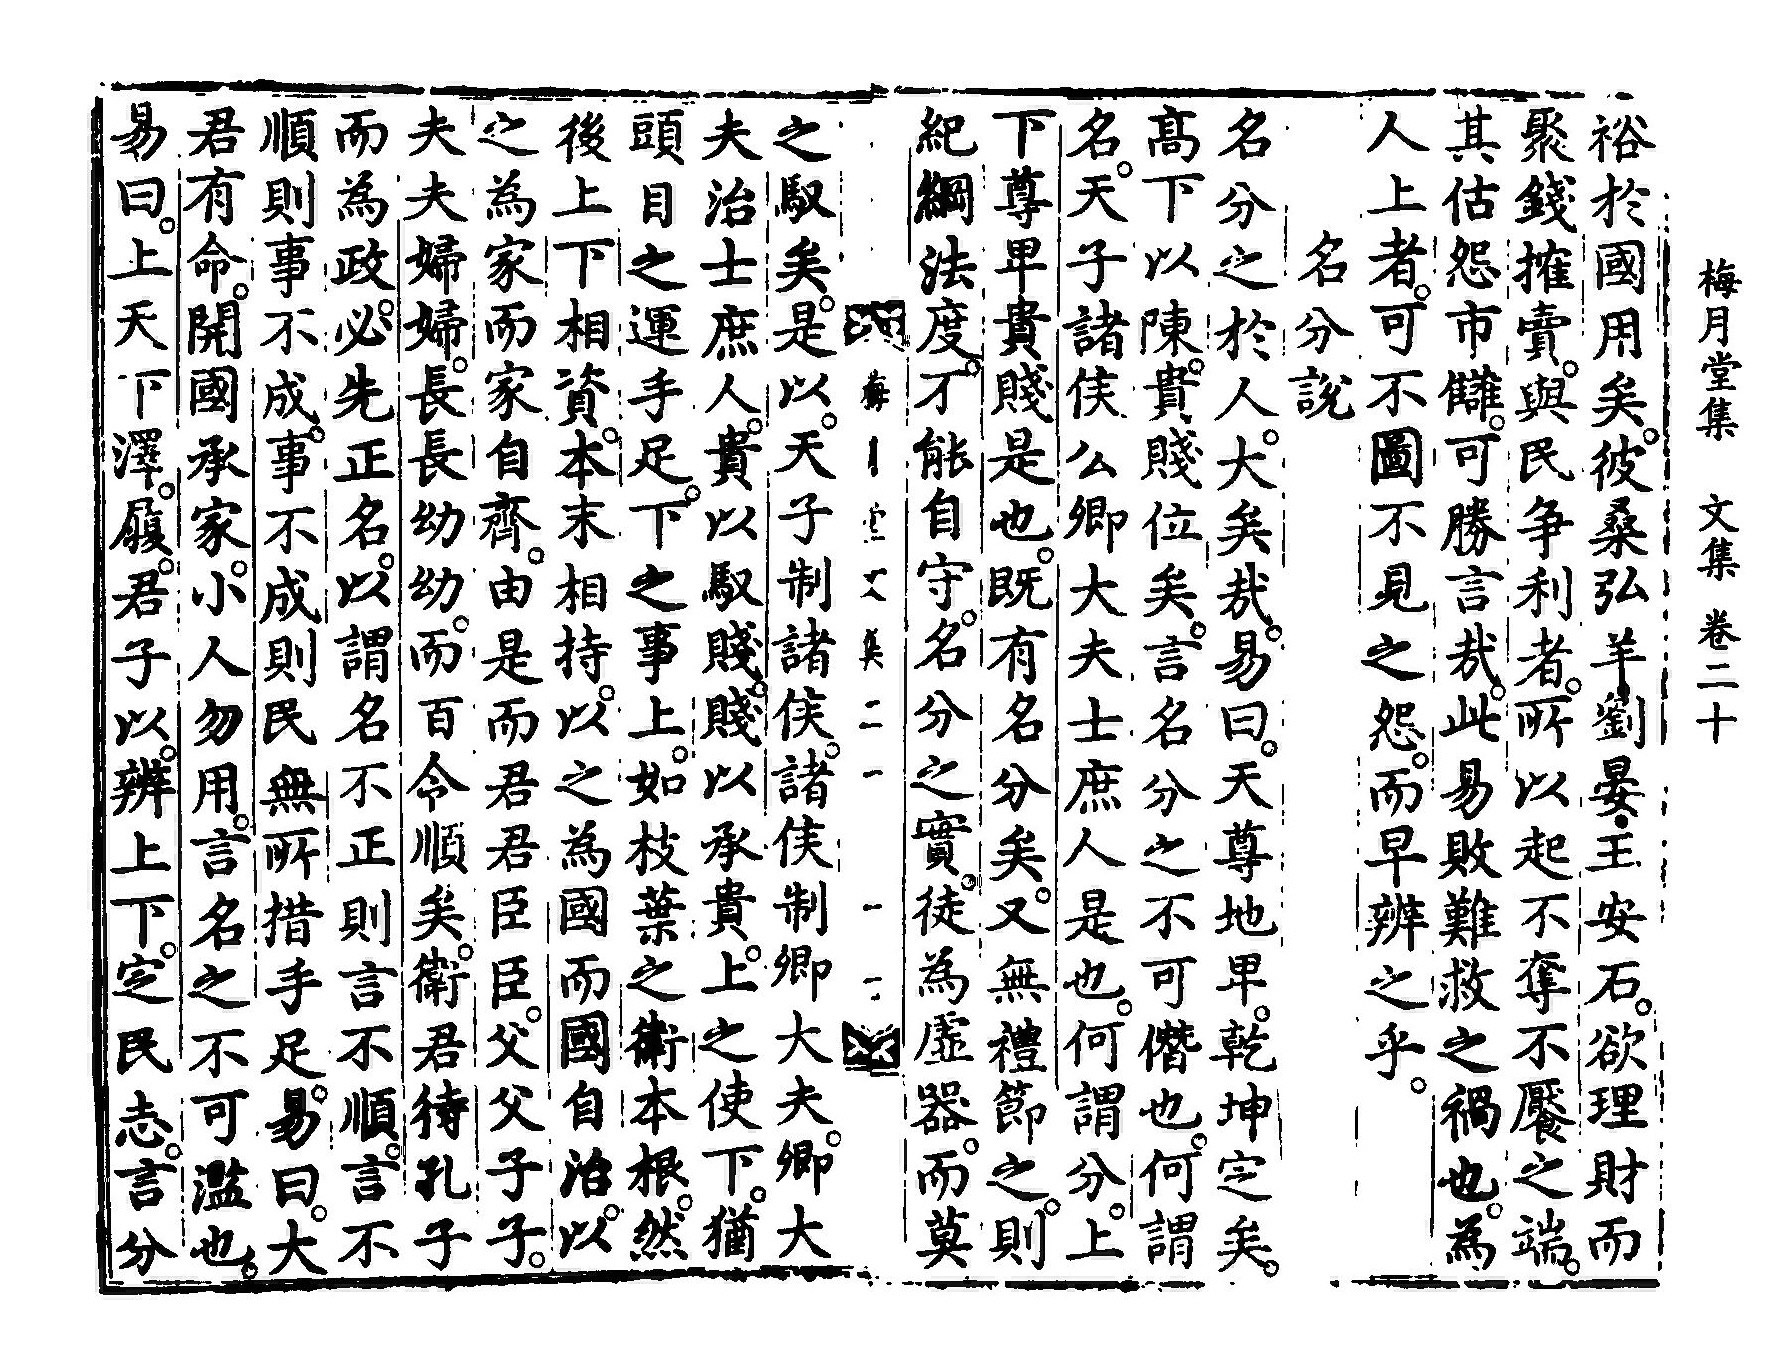 梅月堂集　文集　卷二十
裕於國用矣。彼桑弘羊劉晏·王安石。欲理財而
聚錢搉賣。與民争利者。所以起不奪不饜之端。
其估怨市讎。可勝言㢤。此易敗難救之禍也。為
人上者。可不圖不見之怨。而早辨之乎。
名分說
名分之於人。大矣㢤。易曰。天尊地卑。乾坤定矣。
髙下以陳。貴賤位矣。言名分之不可僭也。何謂
名。天子諸侯公卿大夫士庶人是也。何謂分。上
下尊卑貴賤是也。旣有名分矣。又無禮節之。則
紀綱法度。不能自守。名分之實。徒為虛器。而莫
之馭矣。是以。天子制諸侯。諸侯制卿大夫。卿大
夫治士庶人。貴以馭賤。賤以承貴。上之使下。猶
頭目之運手足。下之事上。如枝葉之衛本根。然
後上下相資。本末相持。以之為國而國自治。以
之為家而家自齊。由是而君君臣臣。父父子子。
夫夫婦婦。長長幼幼。而百令順矣。衛君待孔子
而為政。必先正名。以謂名不正則言不順。言不
順則事不成。事不成則民無所措手足。易曰。大
君有命。開國承家。小人勿用。言名之不可濫也。
易曰。上天下澤。履。君子以。辨上下。定民志。言分
梅月堂文集二十